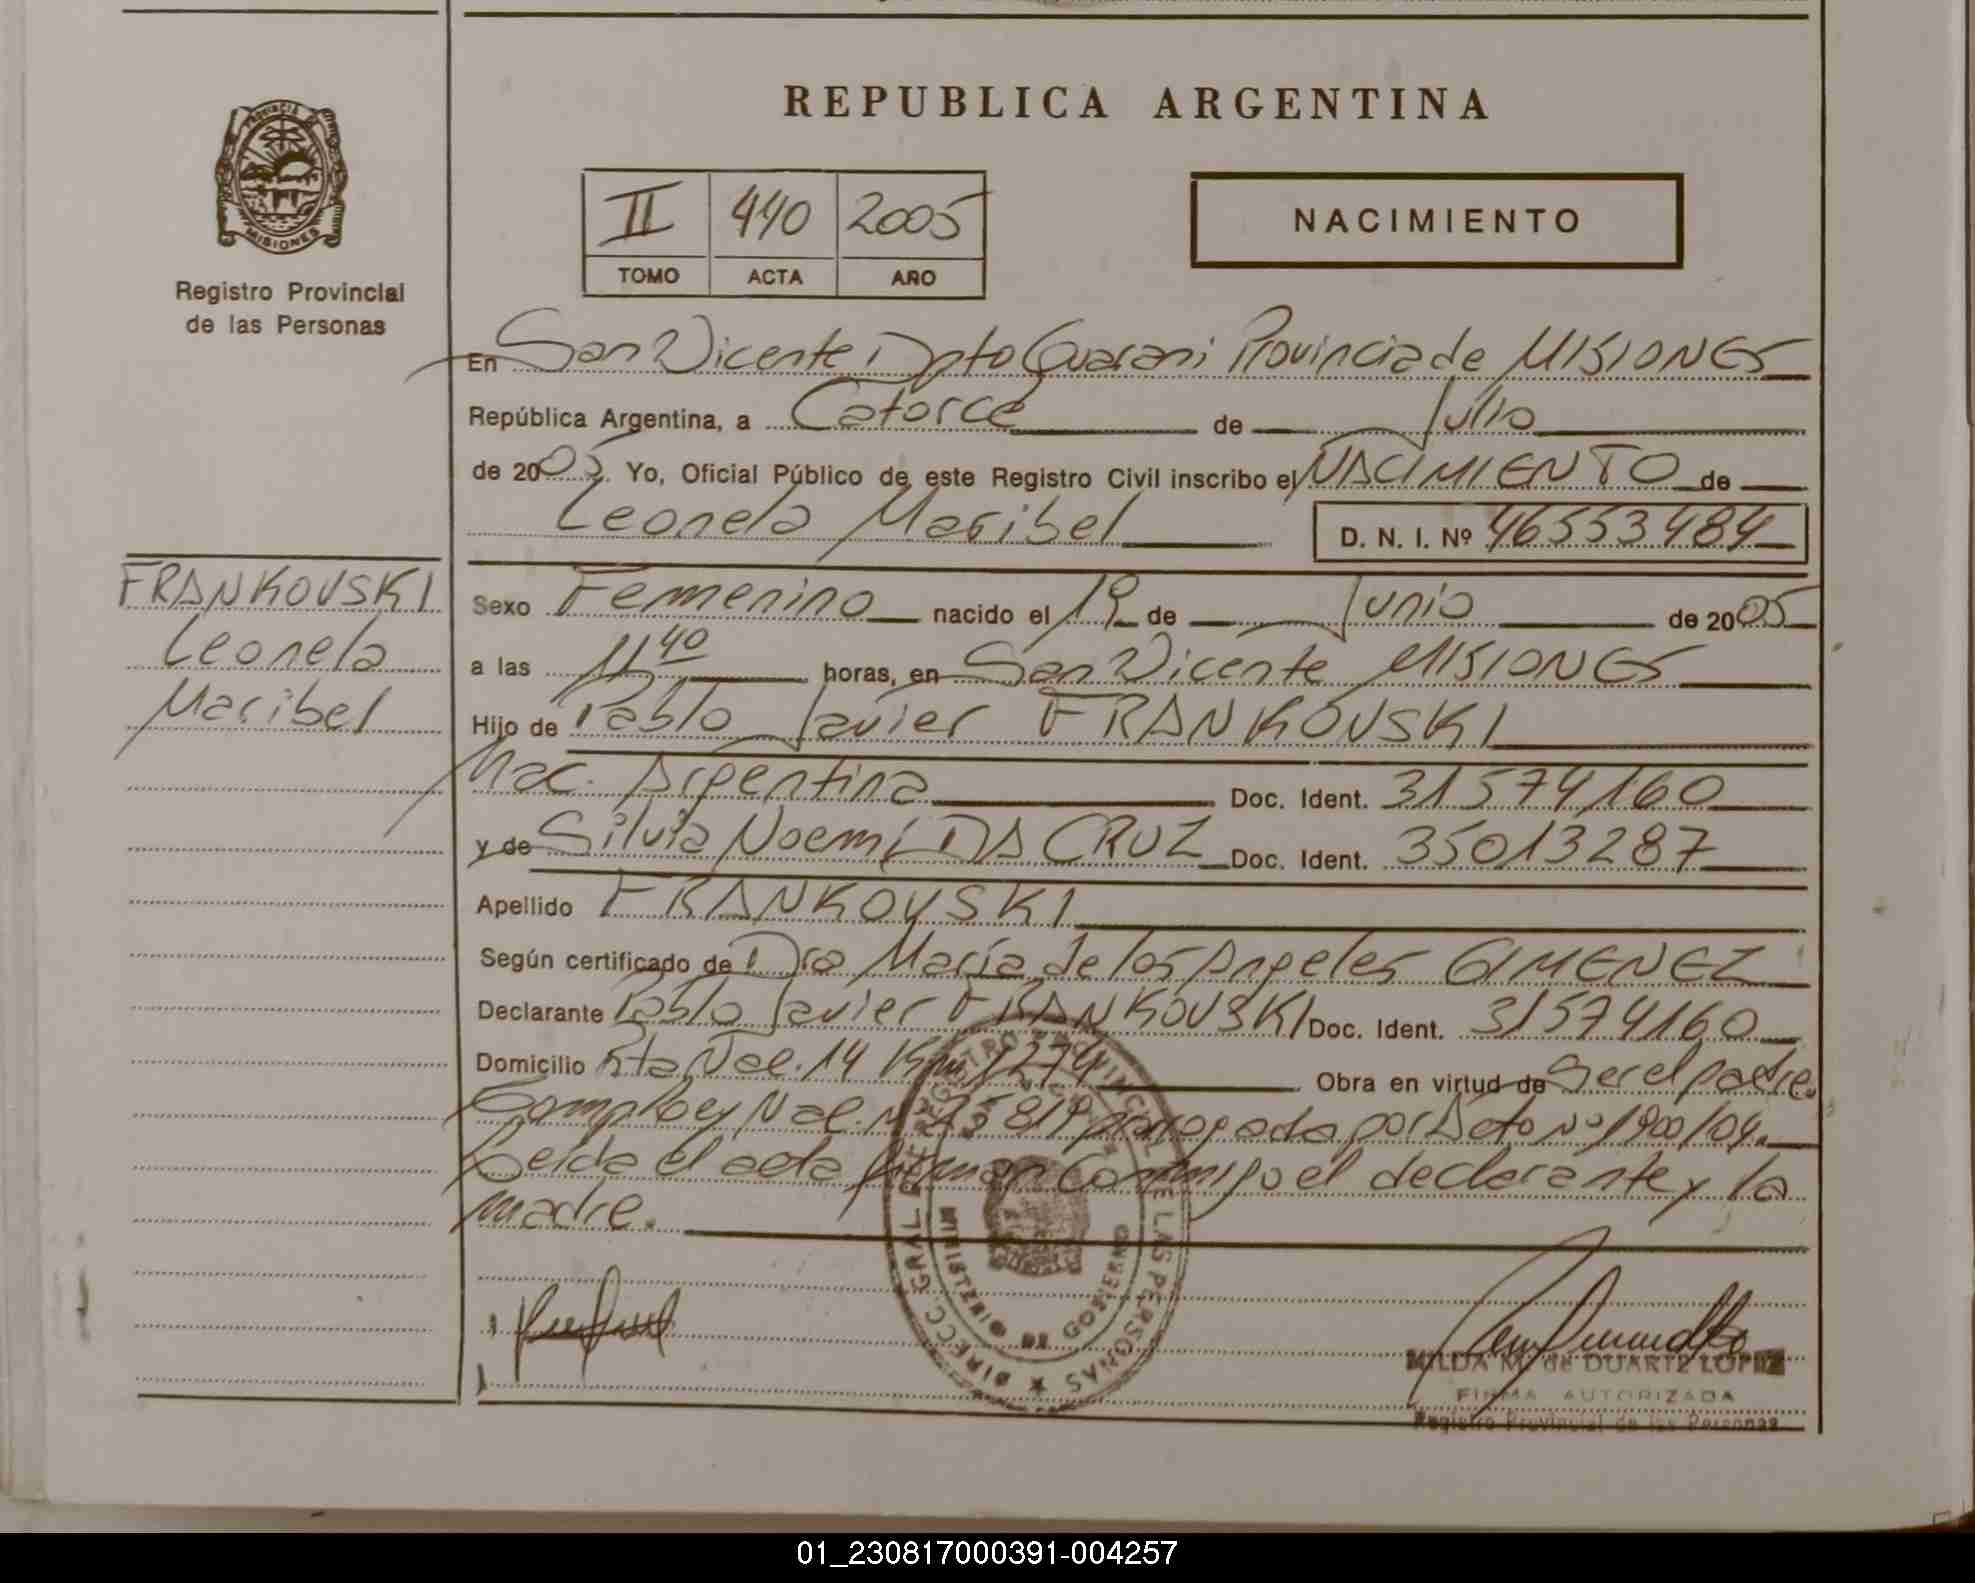 REPUBLICA ARGENTINA
PROVINCIA DE MISIONES
Registro Provincial
de las Personas
II 440 2005
TOMO ACTA AÑO
NACIMIENTO
En San Vicente Dpto Guarani Provincia de MISIONES
República Argentina, a Catorce de Julio
de 2005. Yo, Oficial Público de este Registro Civil inscribo el NACIMIENTO de
Leonela Maribel D. N. I. Nº 46553484
FRANKOVSKI
Leonela
Maribel
Sexo Femenino nacido el 19 de Junio de 2005
a las 11 40 horas, en San Vicente MISIONES
Hijo de Pablo Javier FRANKOVSKI
Nac. Argentina Doc. Ident. 31574160
y de Silvia Noemí DA CRUZ Doc. Ident. 35013287
Apellido FRANKOVSKI
Según certificado de Dra María de los Angeles GIMENEZ
Declarante Pablo Javier FRANKOVSKI Doc. Ident. 31574160
Domicilio Rta Nal. 14 Km 1274 Obra en virtud de Ser el padre.
Ley Nal. Nº 25819 prorrogada por Dcto Nº 1900/04.
Leida el acta firman conmigo el declarante y la
madre.
DIRECC. GRAL DE REGISTRO PROVINCIAL DE LAS PERSONAS
MINISTERIO DE GOBIERNO
MILDA M. de DUARTE LOPEZ
FIRMA AUTORIZADA
Registro Provincial de las Personas
01_230817000391-004257